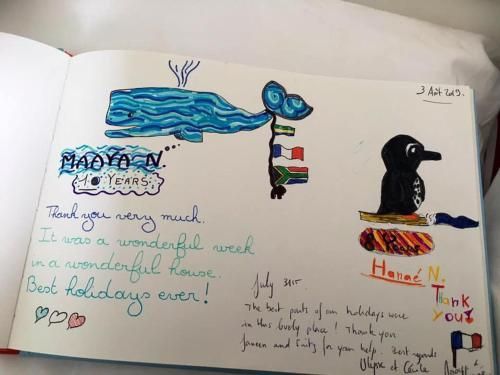 3 Août 2019.
MAAYA N.
10 YEARS
Thank you very much.
It was a wonderful week
in a wonderful house.
Best holidays ever!
Hanaé N.
Thank
you!
July 31st.
The best parts of our holidays were
in this lovely place! Thank you
Janeen and Fritz for your help. Best regards
Ulysse et Cécile